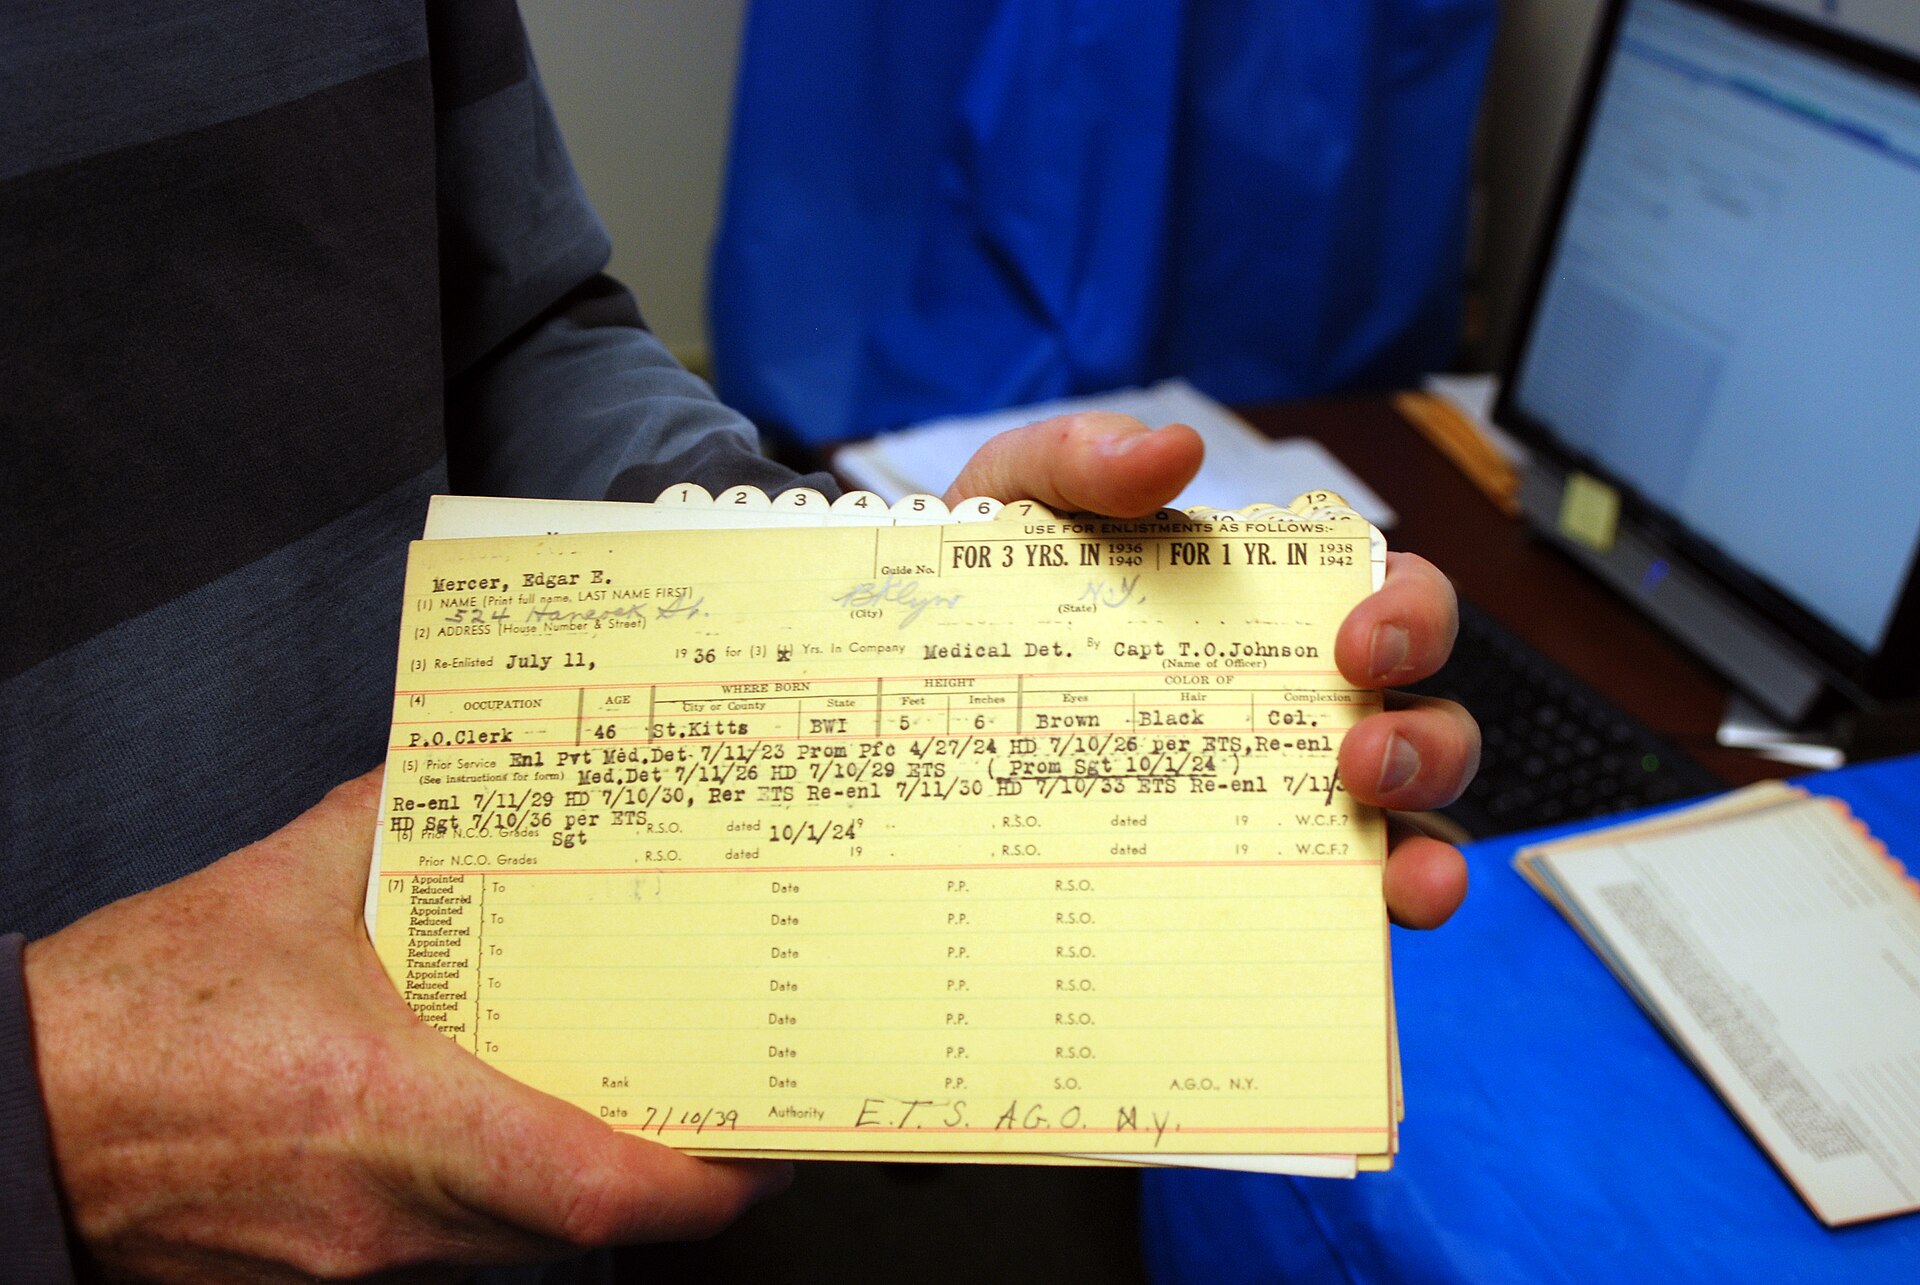 1 2 3 4 5 6 7 12
USE FOR ENLISTMENTS AS FOLLOWS:-
Guide No. FOR 3 YRS. IN 1936 1940 FOR 1 YR. IN 1938 1942
Mercer, Edgar E.
(1) NAME (Print full name, LAST NAME FIRST)
524 Hancock St. Bklyn N.Y.
(2) ADDRESS (House Number & Street) (City) (State)
(3) Re-Enlisted July 11, 1936 for (3) Yrs. In Company Medical Det. By Capt T.O.Johnson
(Name of Officer)
(4) OCCUPATION AGE WHERE BORN HEIGHT COLOR OF
City or County State Feet Inches Eyes Hair Complexion
P.O.Clerk 46 St.Kitts BWI 5 6 Brown Black Col.
(5) Prior Service Enl Pvt Med.Det 7/11/23 Prom Pfc 4/27/24 HD 7/10/26 per ETS,Re-enl
(See instructions for form) Med.Det 7/11/26 HD 7/10/29 ETS ( Prom Sgt 10/1/24 )
Re-enl 7/11/29 HD 7/10/30, Rer ETS Re-enl 7/11/30 HD 7/10/33 ETS Re-enl 7/11/3
HD Sgt 7/10/36 per ETS
(6) Prior N.C.O. Grades Sgt , R.S.O. dated 10/1/24 19 . , R.S.O. dated 19 . W.C.F.?
Prior N.C.O. Grades , R.S.O. dated 19 . , R.S.O. dated 19 . W.C.F.?
(7) Appointed Reduced Transferred To Date P.P. R.S.O.
Appointed Reduced Transferred To Date P.P. R.S.O.
Appointed Reduced Transferred To Date P.P. R.S.O.
Appointed Reduced Transferred To Date P.P. R.S.O.
Appointed duced ferred To Date P.P. R.S.O.
To Date P.P. R.S.O.
Rank Date P.P. S.O. A.G.O., N.Y.
Date 7/10/39 Authority E.T.S. A.G.O. N.Y.